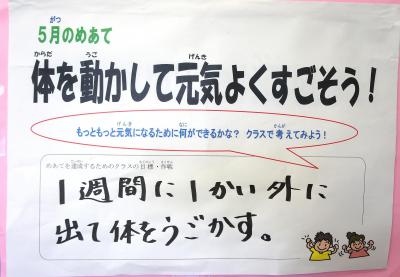 がつ
5月のめあて
からだ うご げんき
体を動かして元気よくすごそう！
げんき なに かんが
もっともっと元気になるために何ができるかな？ クラスで考えてみよう！
めあてを達成するためのクラスの目標・作戦
1週間に1かい外に
出て体をうごかす。